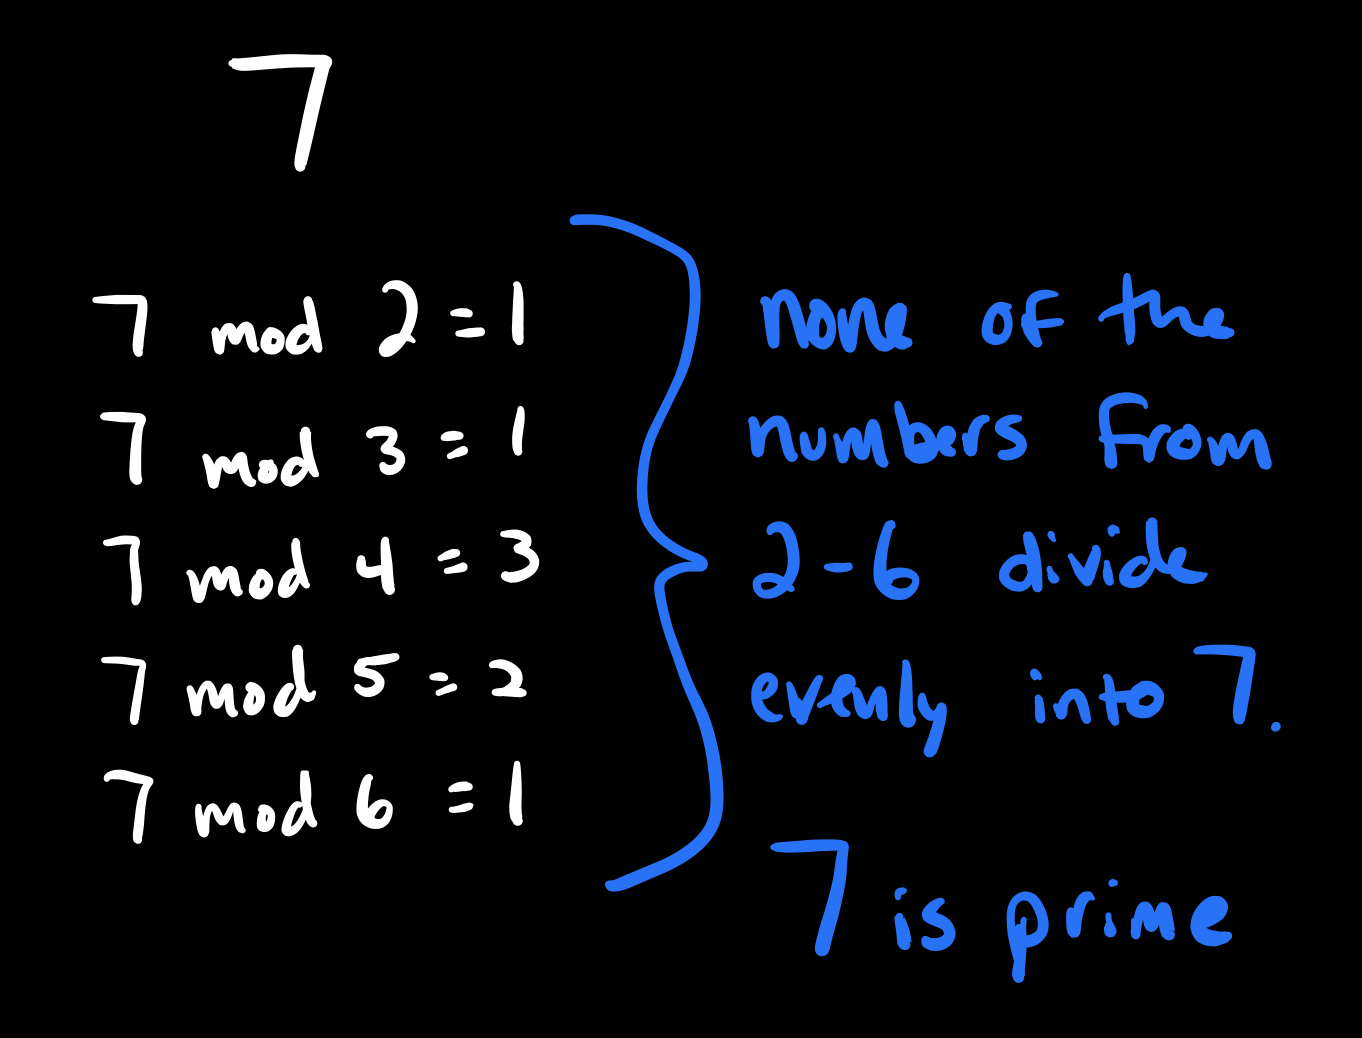 7
7 mod 2 = 1
7 mod 3 = 1
7 mod 4 = 3
7 mod 5 = 2
7 mod 6 = 1
none of the
numbers from
2-6 divide
evenly into 7.
7 is prime